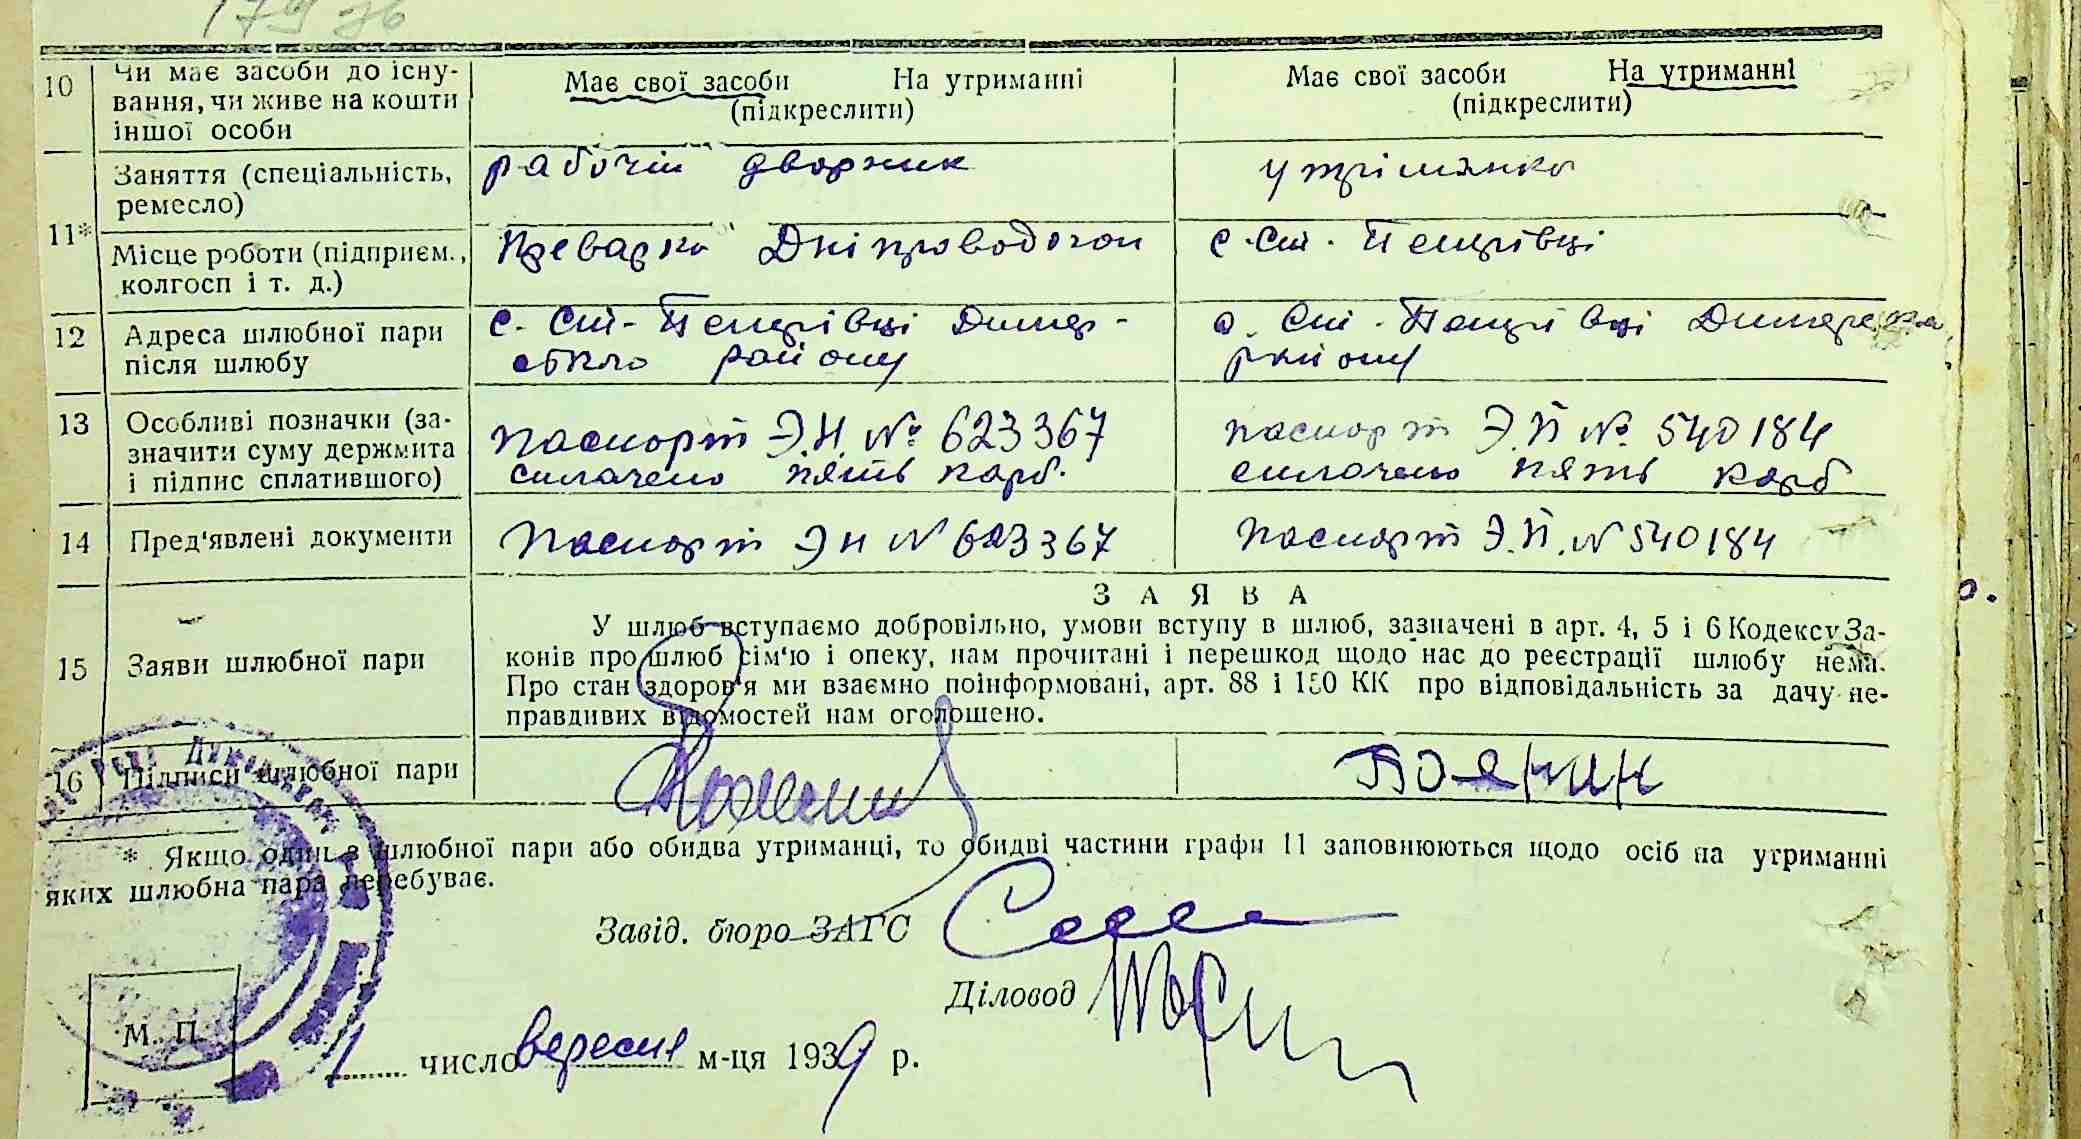 179 зв
10 Чи має засоби до існу-
вання, чи живе на кошти
іншої особи
Має свої засоби На утриманні
(підкреслити)
Має свої засоби На утриманні
(підкреслити)
11* Заняття (спеціальність,
ремесло)
рабочій дворник
утріманка
Місце роботи (підприєм.,
колгосп і т. д.)
Дніпроводогон
с. Ст. Петрівці
12 Адреса шлюбної пари
після шлюбу
с. Ст. Петрівці Димер-
ського району
с. Ст. Петрівці Димерського
району
13 Особливі позначки (за-
значити суму держмита
і підпис сплатившого)
паспорт Э.Н. № 623367
сплачено пять карб.
паспорт Э.П № 540184
сплачено пять карб
14 Пред'явлені документи
Паспорт Э Н N 623367
Паспорт Э.П. N 540184
15 Заяви шлюбної пари
ЗАЯВА
У шлюб вступаємо добровільно, умови вступу в шлюб, зазначені в арт. 4, 5 і 6 Кодексу За-
конів про шлюб сім'ю і опеку, нам прочитані і перешкод щодо нас до реєстрації шлюбу нема.
Про стан здоров'я ми взаємно поінформовані, арт. 88 і 150 КК про відповідальність за дачу не-
правдивих відомостей нам оголошено.
16 Підписи шлюбної пари
Боянин
* Якщо один з шлюбної пари або обидва утриманці, то обидві частини графи 11 заповнюються щодо осіб на утриманні
яких шлюбна пара перебуває.
Завід. бюро ЗАГС
Діловод
М. П.
1 число вересня м-ця 1939 р.